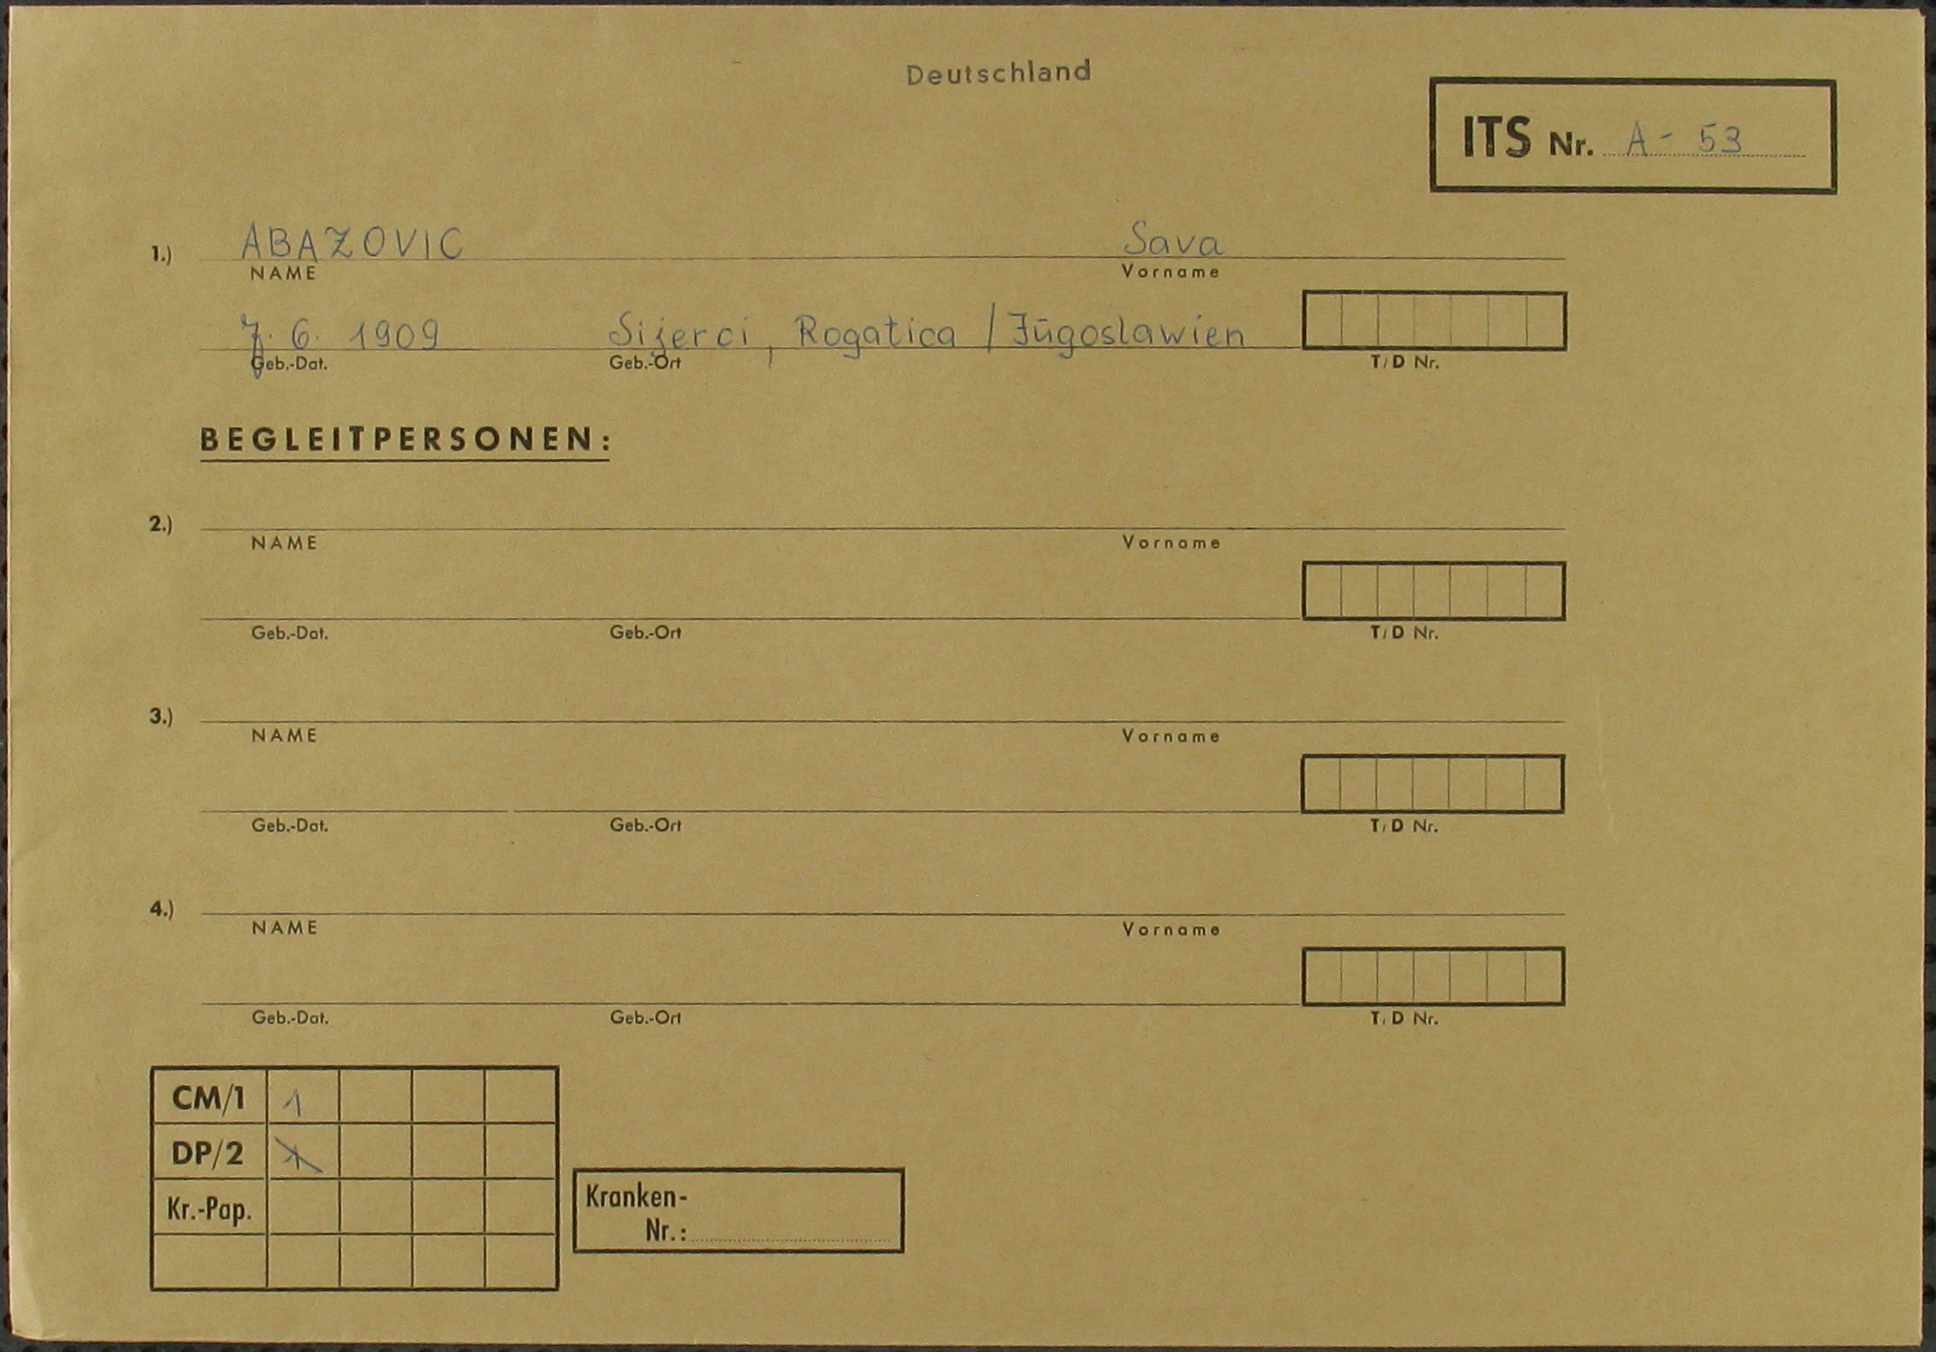 Deutschland
ITS Nr. A - 53
1.) ABAZOVIC Sava
NAME Vorname
7. 6. 1909 Sijerci, Rogatica / Jūgoslawien
Geb.-Dat. Geb.-Ort T/D Nr.
BEGLEITPERSONEN:
2.)
NAME Vorname
Geb.-Dat. Geb.-Ort T/D Nr.
3.)
NAME Vorname
Geb.-Dat. Geb.-Ort T/D Nr.
4.)
NAME Vorname
Geb.-Dat. Geb.-Ort T/D Nr.
CM/1 1
DP/2 1
Kr.-Pap.
Kranken-
Nr.: